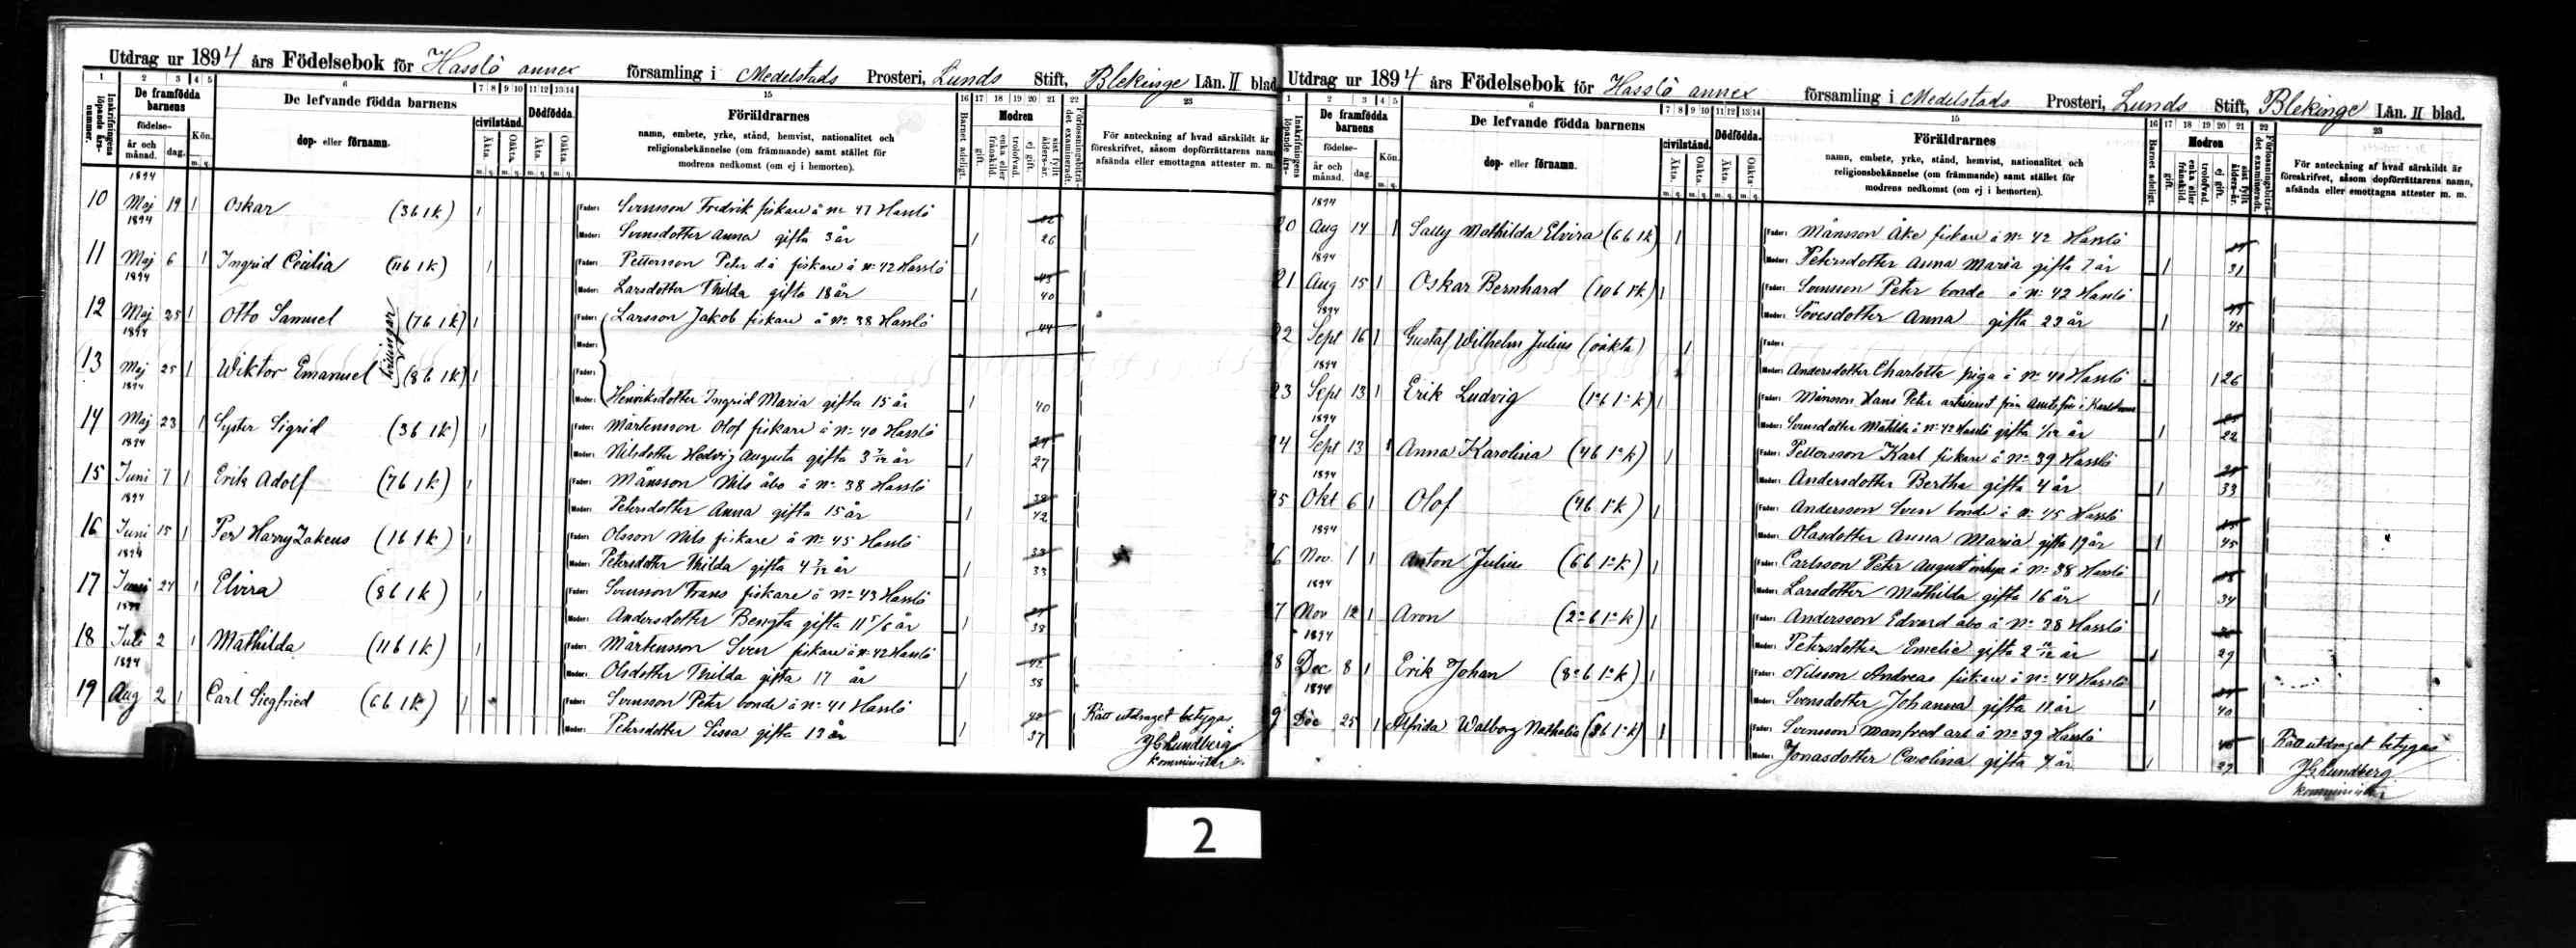 Utdrag ur 1894 års Födelsebok för Hasslö annex församling i Medelstads Prosteri, Lunds Stift, Blekinge Län. II blad.
1 2 3 4 5 6 7 8 9 10 11 12 13 14 15 16 17 18 19 20 21 22 23
Inskrifningens löpande års-nummer.
De framfödda barnens
födelse-
år och månad.
dag.
Kön.
m. q.
De lefvande födda barnens
dop- eller förnamn.
civilstånd.
Äkta.
Oäkta.
Dödfödda.
Äkta.
Oäkta.
Föräldrarnes
namn, embete, yrke, stånd, hemvist, nationalitet och
religionsbekännelse (om främmande) samt stället för
modrens nedkomst (om ej i hemorten).
Barnet adeligt.
Modren
gift.
enka eller frånskild.
trolofvad.
ej gift.
sist fyllt ålders-år.
Förlossningsbiträdet examineradt.
För anteckning af hvad särskildt är
föreskrifvet, såsom dopförrättarens namn,
afsända eller emottagna attester m. m.
1894
10 Maj 19 1 Oskar (3 b 1 k) 1 Fader: Svensson Fredrik fiskare å No 47 Hasslö
1894 Moder: Svensdotter Anna gifta 3 år 1 26
11 Maj 6 1 Ingrid Cecilia (11 b 1 k) 1 Fader: Pettersson Peter d.ä fiskare å No 42 Hasslö
1894 Moder: Larsdotter Thilda gifta 18 år 1 40
12 Maj 25 1 Otto Samuel (7 b 1 k) 1 Fader: Larsson Jakob fiskare å No 38 Hasslö 44
1894 Moder:
tvillingar
13 Maj 25 1 Wiktor Emanuel (8 b 1 k) 1 Fader:
1894 Moder: Henriksdotter Ingrid Maria gifta 15 år 1 40
14 Maj 23 1 Syster Sigrid (3 b 1 k) 1 Fader: Mårtensson Olof fiskare å No 40 Hasslö
1894 Moder: Nilsdotter Hedvig Augusta gifta 3 7/12 år 1 27
15 Juni 7 1 Erik Adolf (7 b 1 k) 1 Fader: Månsson Nils åbo å No 38 Hasslö
1894 Moder: Petersdotter Anna gifta 15 år 1 42
16 Juni 15 1 Per Harry Zakeus (1 b 1 k) 1 Fader: Olsson Nils fiskare å No 45 Hasslö
1894 Moder: Petersdotter Thilda gifta 4 7/12 år 1 33
17 Juni 24 1 Elvira (8 b 1 k) 1 Fader: Svensson Frans fiskare å No 43 Hasslö
1894 Moder: Andersdotter Bengta gifta 11 5/6 år 1 38
18 Juli 2 1 Mathilda (11 b 1 k) 1 Fader: Mårtensson Sven fiskare å No 42 Hasslö 42
1894 Moder: Olsdotter Thilda gifta 17 år 1 38
19 Aug 2 1 Carl Siegfried (6 b 1 k) 1 Fader: Svensson Peter bonde å No 41 Hasslö
Moder: Petersdotter Sissa gifta 13 år 1 37
Rätt utdraget betygas
J G Lundberg
komminister
Utdrag ur 1894 års Födelsebok för Hasslö annex församling i Medelstads Prosteri, Lunds Stift, Blekinge Län. II blad.
1 2 3 4 5 6 7 8 9 10 11 12 13 14 15 16 17 18 19 20 21 22 23
Inskrifningens löpande års-
De framfödda barnens
födelse-
år och månad.
dag.
Kön.
m. q.
De lefvande födda barnens
dop- eller förnamn.
civilstånd.
Äkta.
Oäkta.
Dödfödda.
Äkta.
Oäkta.
Föräldrarnes
namn, embete, yrke, stånd, hemvist, nationalitet och
religionsbekännelse (om främmande) samt stället för
modrens nedkomst (om ej i hemorten).
Barnet adeligt.
Modren
gift.
enka eller frånskild.
trolofvad.
ej gift.
sist fyllt ålders-år.
Förlossningsbiträdet examineradt.
För anteckning af hvad särskildt är
föreskrifvet, såsom dopförrättarens namn,
afsända eller emottagna attester m. m.
1894
20 Aug 14 1 Sally Mathilda Elvira (6 b 1 k) 1 Fader: Månsson Åke fiskare å No 42 Hasslö
1894 Moder: Petersdotter Anna Maria gifta 7 år 1 31
21 Aug 15 1 Oskar Bernhard (10 b 1 k) 1 Fader: Svensson Peter bonde å No 42 Hasslö
1894 Moder: Sövesdotter Anna gifta 23 år 1 45
22 Sept 16 1 Gustaf Wilhelm Julius (oäkta) 1 Fader:
1894 Moder: Andersdotter Charlotta piga å No 40 Hasslö 1 26
23 Sept 13 1 Erik Ludvig (1a b 1a k) 1 Fader: Månsson Hans Peter artillerist från
1894 Moder: Svensdotter Matilda å No 42 Hasslö gifta 1/12 år 1 22
4 Sept 13 1 Anna Karolina (4 b 1a k) 1 Fader: Pettersson Karl fiskare å No 39 Hasslö
1894 Moder: Andersdotter Bertha gifta 4 år 1 33
25 Okt 6 1 Olof (4 b 1 k) 1 Fader: Andersson Sven bonde å No 45 Hasslö
1894 Moder: Olasdotter Anna Maria gifta 19 år 1 45
6 Nov. 1 1 Anton Julius (6 b 1a k) 1 Fader: Carlsson Peter August å No 38 Hasslö
1894 Moder: Larsdotter Mathilda gifta 16 år 1 34
7 Nov 12 1 Aron (2a b 1a k) 1 Fader: Andersson Edvard åbo å No 38 Hasslö
1894 Moder: Petersdotter Emelie gifta 2 år 1 29
8 Dec 8 1 Erik Johan (8a b 1a k) 1 Fader: Nilsson Andreas fiskare å No 44 Hasslö
1894 Moder: Svensdotter Johanna gifta 18 år 1 40
9 Dec 25 1 Alfrida Walborg Nathalia (3 b 1a k) 1 Fader: Svensson Manfred arb å No 39 Hasslö
Moder: Jonasdotter Carolina gifta 4 år 1 27
Rätt utdraget betygas
J G Lundberg
komminister
2